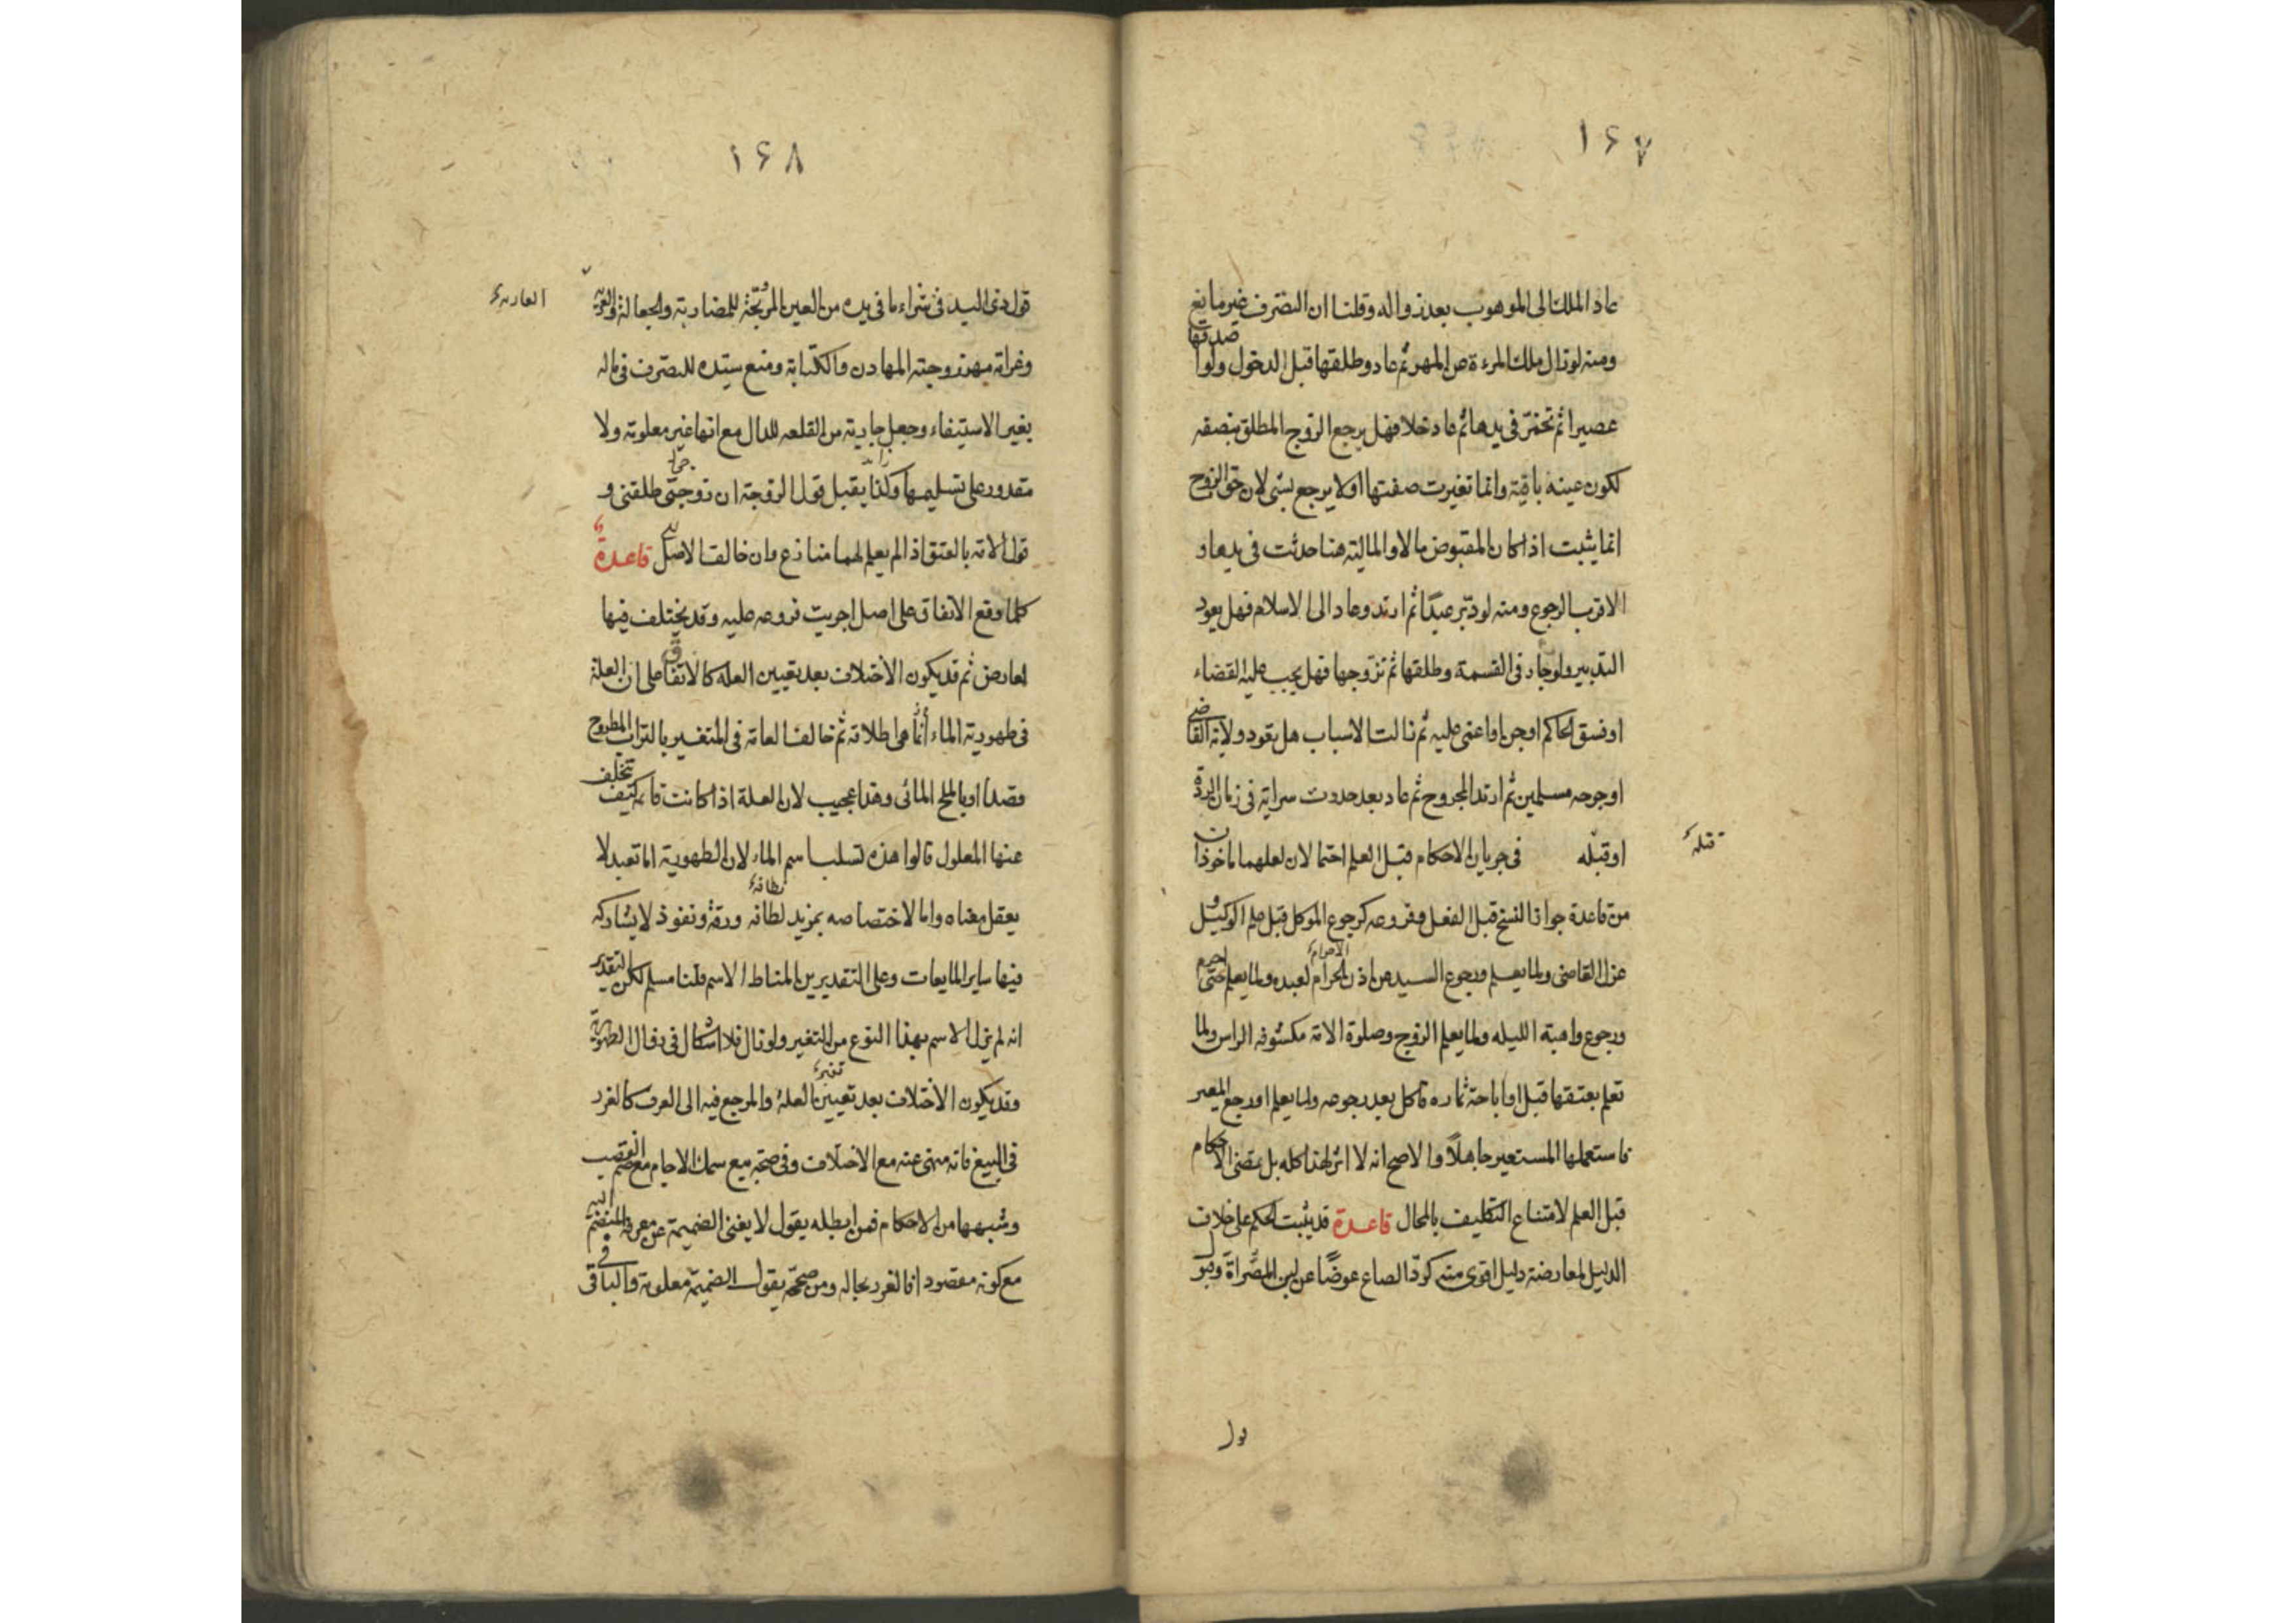 ١۶٧
عاد الملك الى الموهوب بعد زواله وقلنا ان التصرف غير مانع
ومنه لو زال ملك المرءة عن المهر ثم عاد وطلقها قبل الدخول ولو اصدقها
عصيرا ثم تخمّر فى يدها ثم عاد خلا فهل يرجع الزوج المطلق بنصفه
لكون عينه باقية وانما تغيرت صفتها اولا يرجع بشى لان حق الزوج
انما يثبت اذا كان المقبوض مالا والمالية هنا حدثت فى يدها و
الاقرب الرجوع ومنه لو دبّر عبدًا ثم ارتد وعاد الى الاسلام فهل يعود
التدبير ولو جار فى القسمة وطلقها ثم تزوجها فهل يجب عليه القضاء
او فسق الحاكم او جن او اغمى عليه ثم زالت الاسباب هل يعود ولاية القاضى
او جرحه مسلمين ثم ارتد المجروح ثم عاد بعد حدوث سراية فى زمان الردة
او قبله فى جريان الاحكام قبل العلم احتمالان لعلهما ماخوذان
قبله
من قاعدة جواز النسخ قبل الفعل وفروعه كرجوع الموكل قبل علم الوكيل و
عزل القاضى ولما يعلم ورجوع السيد عن اذن الحرام لعبده ولما يعلم حتى احرم
الاحرام
ورجوع واهبة الليله ولما يعلم الزوج وصلوة الامة مكشوفه الراس ولما
تعلم بعتقها قبل او اباحة ثماره فاكل بعد رجوعه ولما يعلم او رجع المعير
فاستعملها المستعير جاهلًا والاصح انه لا اثر لهذا كله بل مقتضى الاحكام
قبل العلم لامتناع التكليف بالمحال قاعدة قد يثبت الحكم على خلاف
الدليل لمعارضة دليل اقوى منه كردّ الصاع عوضًا عن لبن المصّراة وقبول
ول
١۶٨
قول ذى اليد فى شراء ما فى يده من العين المرتجّة للمضاربة والجعالة والعرية
العارية
وغرامة مهر زوجته المهادن والكتابة ومنع سيّده للتصرف فى ماله
بغير الاستيفاء وجعل جارية من القلعه للدال مع انها غير معلومة ولا
مقدور على تسليمها وكذا يقبل قول الزوجة ان زوجى طلقنى و
قول الامة بالعتق اذا لم يعلم لهما منازع وان خالف الاصل قاعدة
كلما وقع الاتفاق على اصل اجريت فروعه عليه وقد يختلف فيها
لعارض ثم قد يكون الاختلاف بعد تعيين العله كالاتفاق على ان العلة
فى طهورية الماء انما هى اطلاقه ثم خالف العامة فى المتغير بالتراب المطروح
قصدا او بالملح المائى وهذا عجيب لان العلة اذا كانت قايمة كيف تتخلف
عنها المعلول قالوا هذه تسلب اسم الماء لان الطهورية اما تعبد لا
يعقل معناه واما لاختصاصه بمزيد لطافه ورقة ونفوذ لا يشاركه
فيها ساير المايعات وعلى التقديرين المناط الاسم قلنا مسلم لكن التقدير
انه لم يزل الاسم بهذا النوع من التغير ولو زال فلا اشكال فى زوال الطهورية
وقد يكون الاختلاف بعد تعيين العلة والمرجع فيه الى العرف كالغرر
فى البيع فانه منهى عنه مع الاختلاف وفى صحة بيع سمك الاجام مع ضم القصب
وشبهها من الاحكام فمن ابطله يقول لا يغنى الضميمة عن معرفة المنضم اليه
مع كونه مقصودا فالغرر بحاله ومن صححه يقول الضميمة معلومة والباقى فى